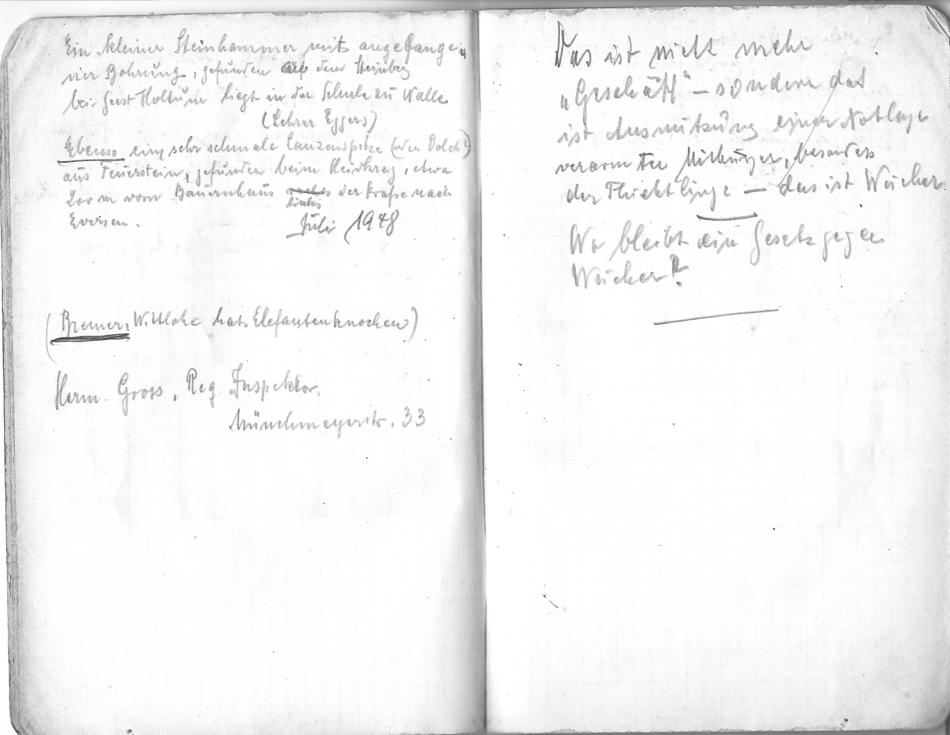 Ein kleiner Steinhammer mit angefange-
ner Bohrung, gefunden auf dem Steinberg
bei Geest Holtum liegt in der Schule zu Walle
(Lehrer Eggers)
Ebenso eine sehr schmale Lanzenspitze (oder Dolch?)
aus Feuerstein, gefunden beim Heidkrug, etwa
200 m vom Bauernhaus links der Straße nach
Eversen.
Juli 1948
(Bremer, Wittlohe hat Elefantenknochen)
Herm. Gross, Reg. Inspektor.
Münchmeyerstr. 33
Das ist nicht mehr
„Geschäft" – sondern das
ist Ausnützung einer Notlage
verarmter Mitbürger, besonders
der Flüchtlinge – das ist Wucher.
Wo bleibt ein Gesetz gegen
Wucher?